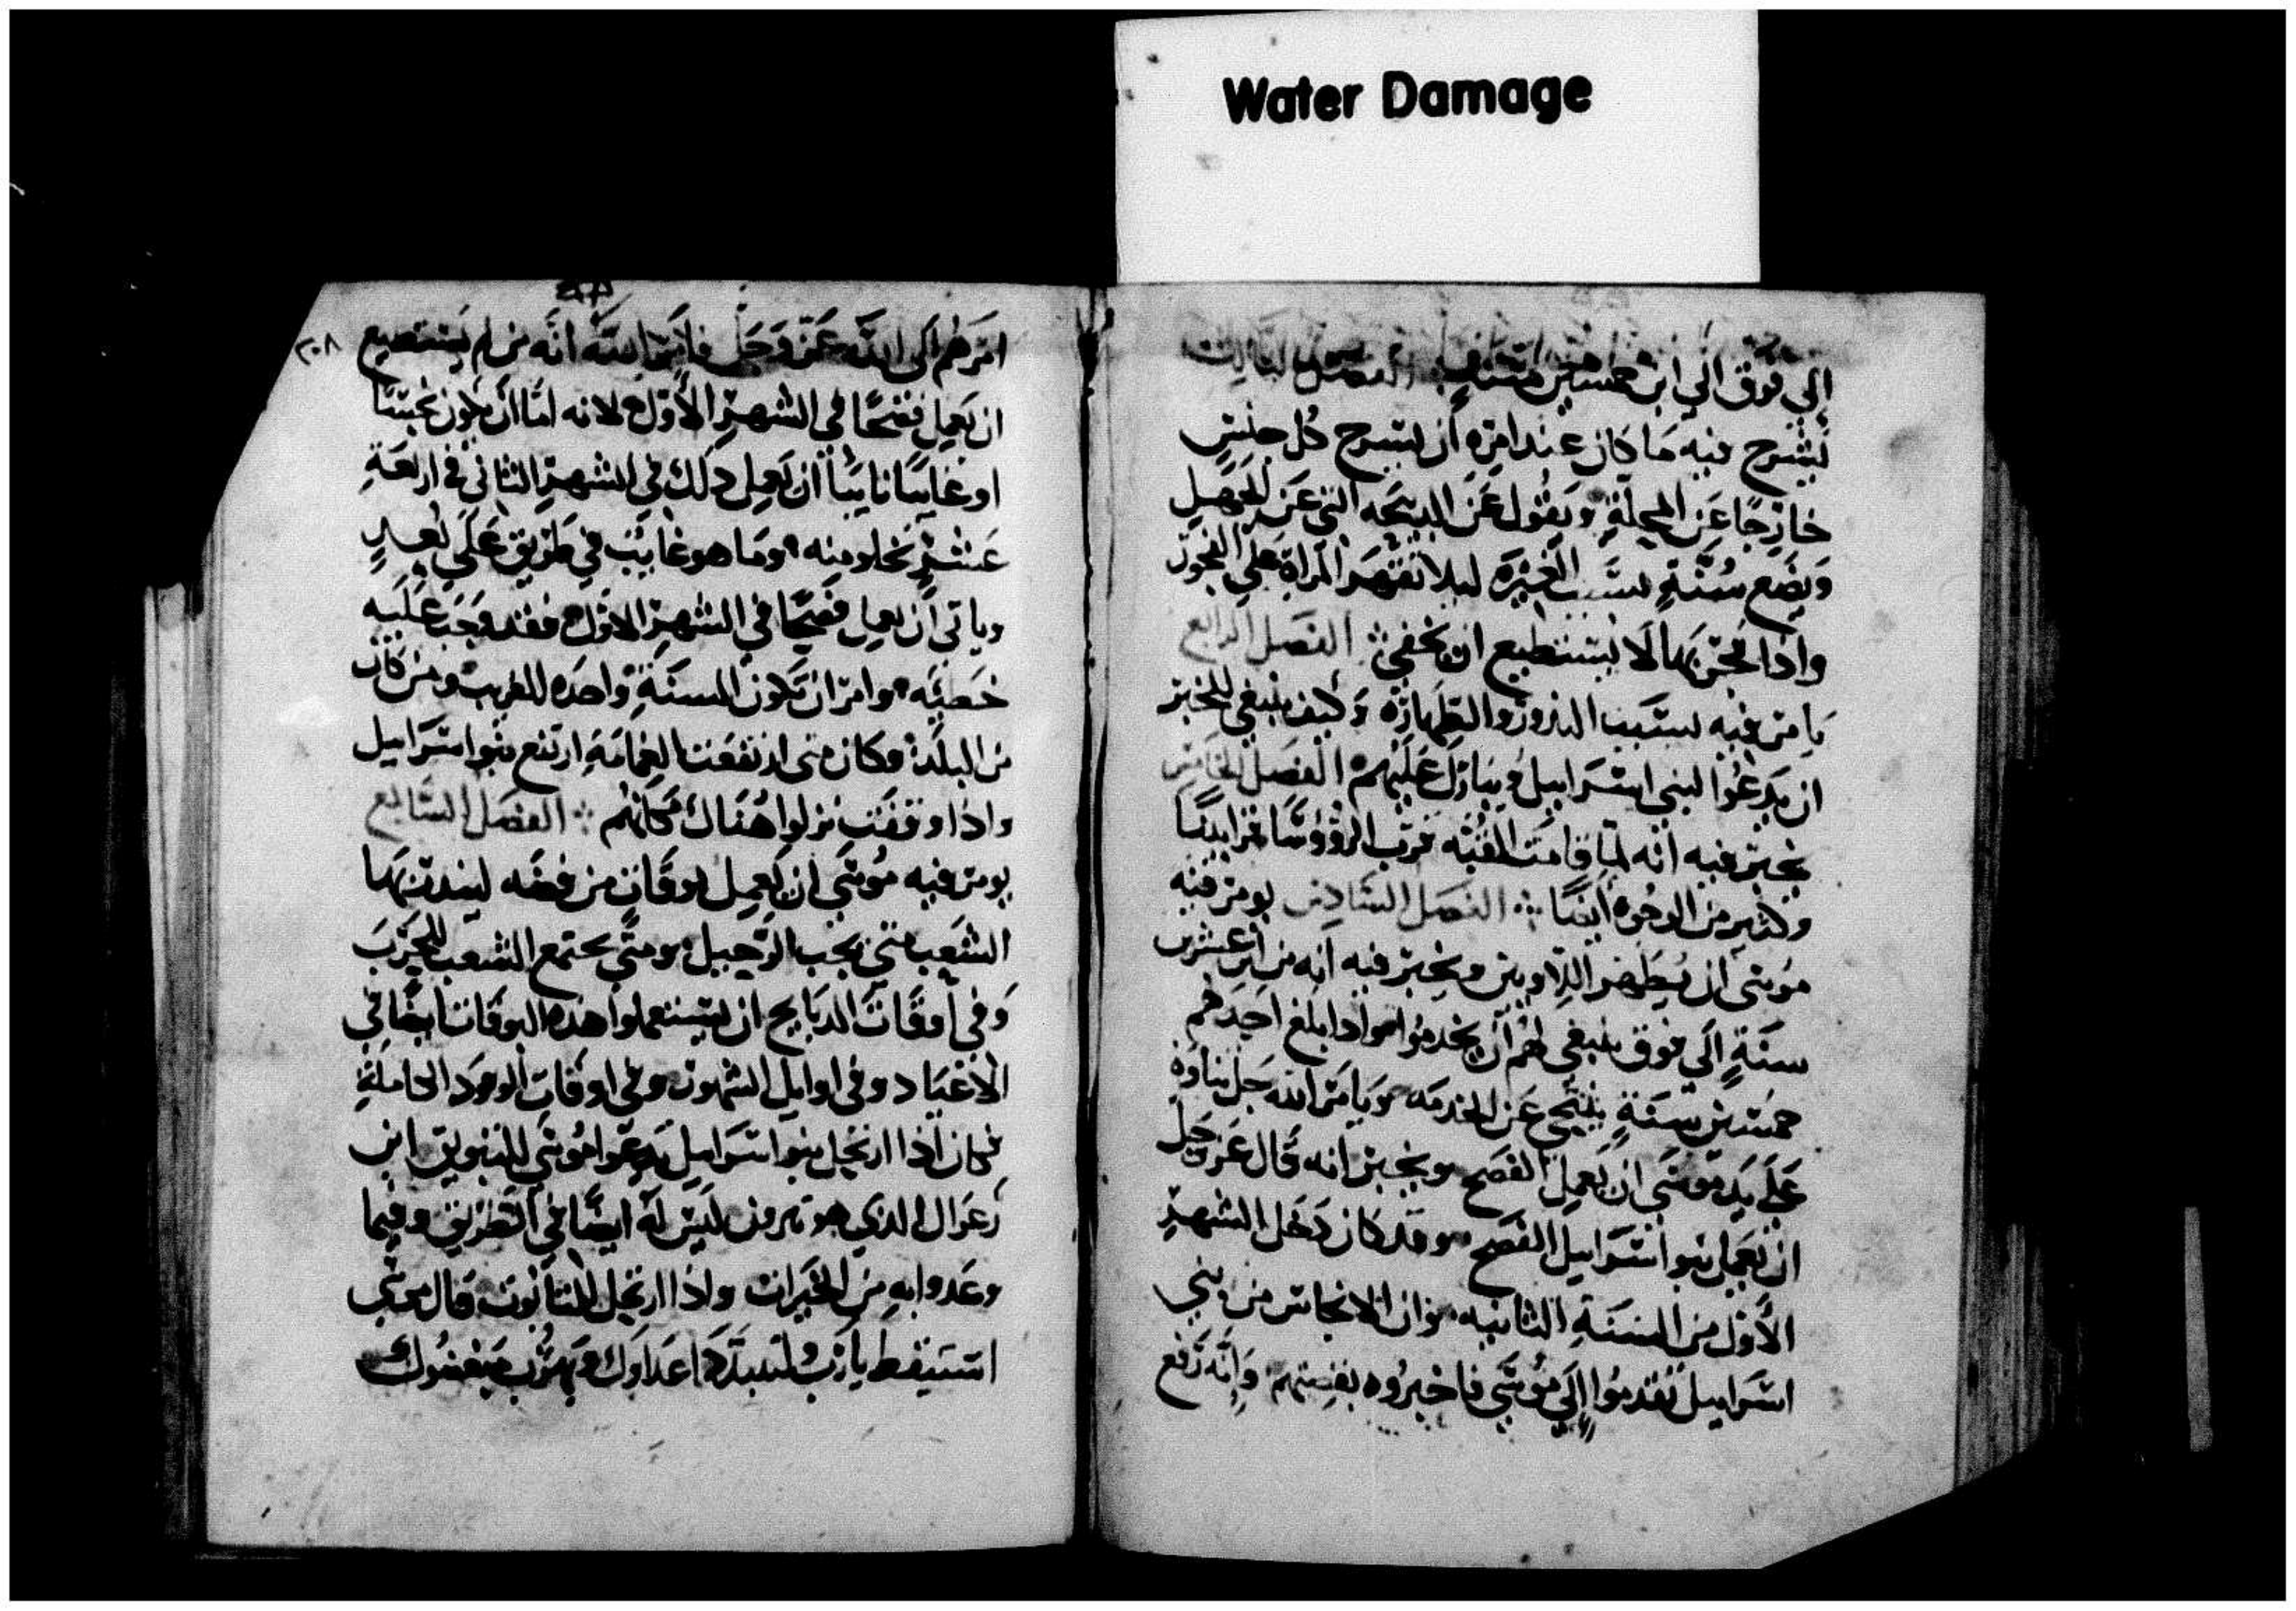 Water Damage
إلي فوق الي ابن خمسين سنة الفصل الثالث
يشرح فيه ما كان عند امره أن يسرح كل جنس
خارجًا عن المحلة ويقول عن الذبيحه التي عن الجهل
ويضع سُنَّةٍ بسبب الغيره ليلا تقهر المراة علي الفجور
واذا فجر بها لا يستطيع ان يخفي الفصل الرابع
يامر فيه بسبب النذور والطهارة وكيف ينبغي للخبر
ان يدعُوا لبني اسراييل ويبارك عليهم الفصل الخامس
يخبر فيه انه لما قامت القبه قرب الرؤوسًا قرابينًا
وكثير من الوجوه أيضًا الفصل السادس يومر فيه
موسي أن يُطهر اللاويين ويخبر فيه انه من ابن عشرين
سنةٍ الي فوق ينبغي لهم أن يخدموا واذا بلغ احدهم
خمسين سنةٍ يتنحي عن الخدمه ويامر الله جل ثناوه
علي يد موسي ان يعمل الفصح ويخبر انه قال عز وجل
ان يعمل بنو اسراييل الفصح وقد كان دخل الشهر
الأول من السنةِ الثانيه وان الانجاس من بني
اسراييل تقدموا إلي موسي فاخبروه بقضيتهم وانه رفع
٢٠٨
امرهم الي الله عز وجل فامر الله أنه من لم يستطيع
ان يعمل فصحًا في الشهر الأول لانه امَّا أن يكون نجسًا
او غايبًا نايبًا ان يعمل ذلك في الشهر الثاني في اربعة
عشر تخلو منه وما هو غايب في طريق علي بعدٍ
وياتي أن يعمل فصحًا في الشهر الاول فقد وجب عليه
خطيه وامر ان تكون السنةِ واحده للغريب ومن كان
من البلد وكان متي ارتفعت الغمامةِ ارتفع بنوا اسراييل
واذا وقفت نزلوا هُناك مكانهُم الفصل السابع
يومر فيه موسي ان يعمل بوقان من فضه لينذر بهما
الشعب متي يجب الرحيل ومتي يجتمع الشعب للحرب
وفي أوقات الدبايح ان يستعملوا هذه البوقات ايضًا في
الاعياد وفي اوايل الشهور وفي اوقات الوعود الكاملة
وكان اذا ارتحل بنو اسراييل يدعوا موسي للثبويق ابن
رعوال الذي هو يثرون ليس له ايضًا في الطريق وفيما
وعدوا به من الخيرات واذا ارتحل التابوت قال موسي
استيقط يا رب ولتتبدد اعداوك ويهرب مبغضوك